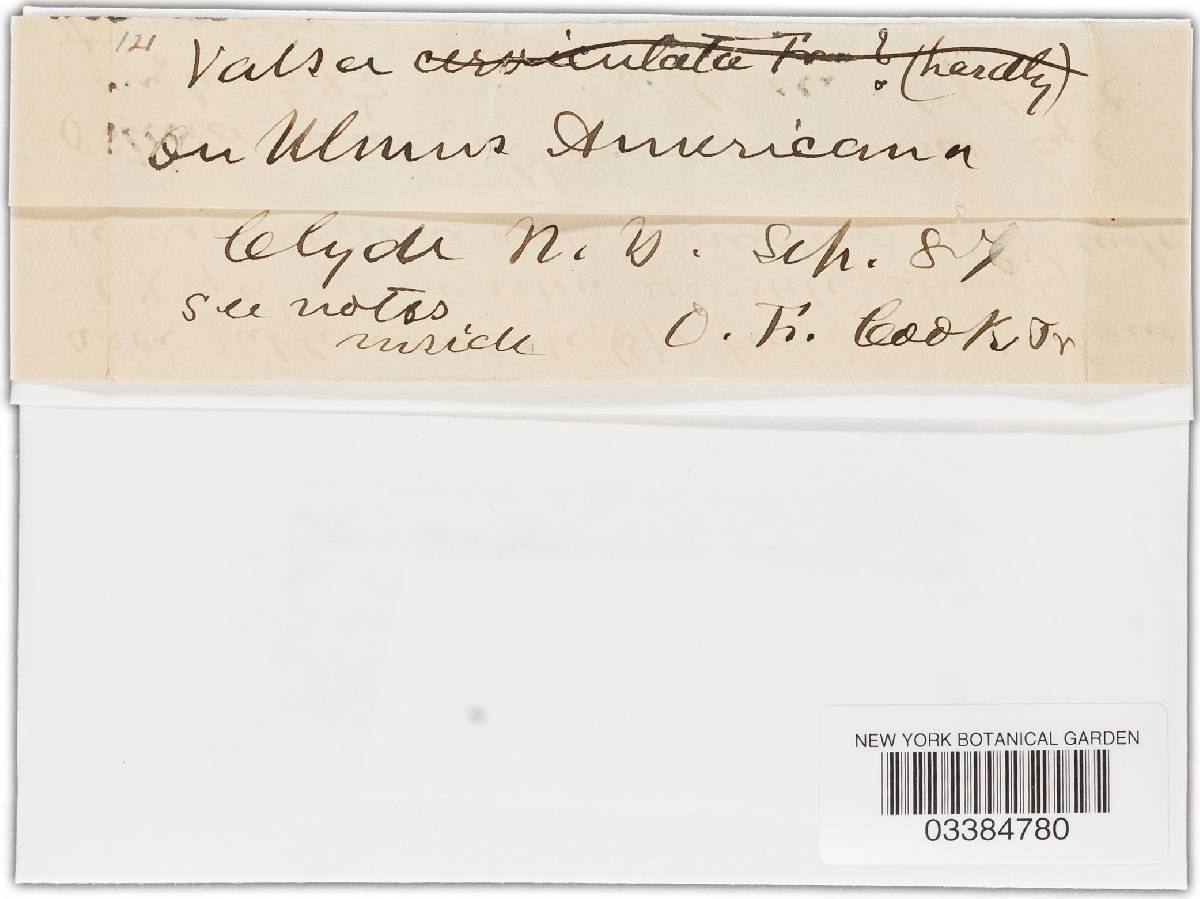 121
Valsa cerviculata Fr. ? (hardly)
on Ulmus Americana
Clyde N. Y. Sep. 87
see notes
inside
O. F. Cook Jr
NEW YORK BOTANICAL GARDEN
03384780